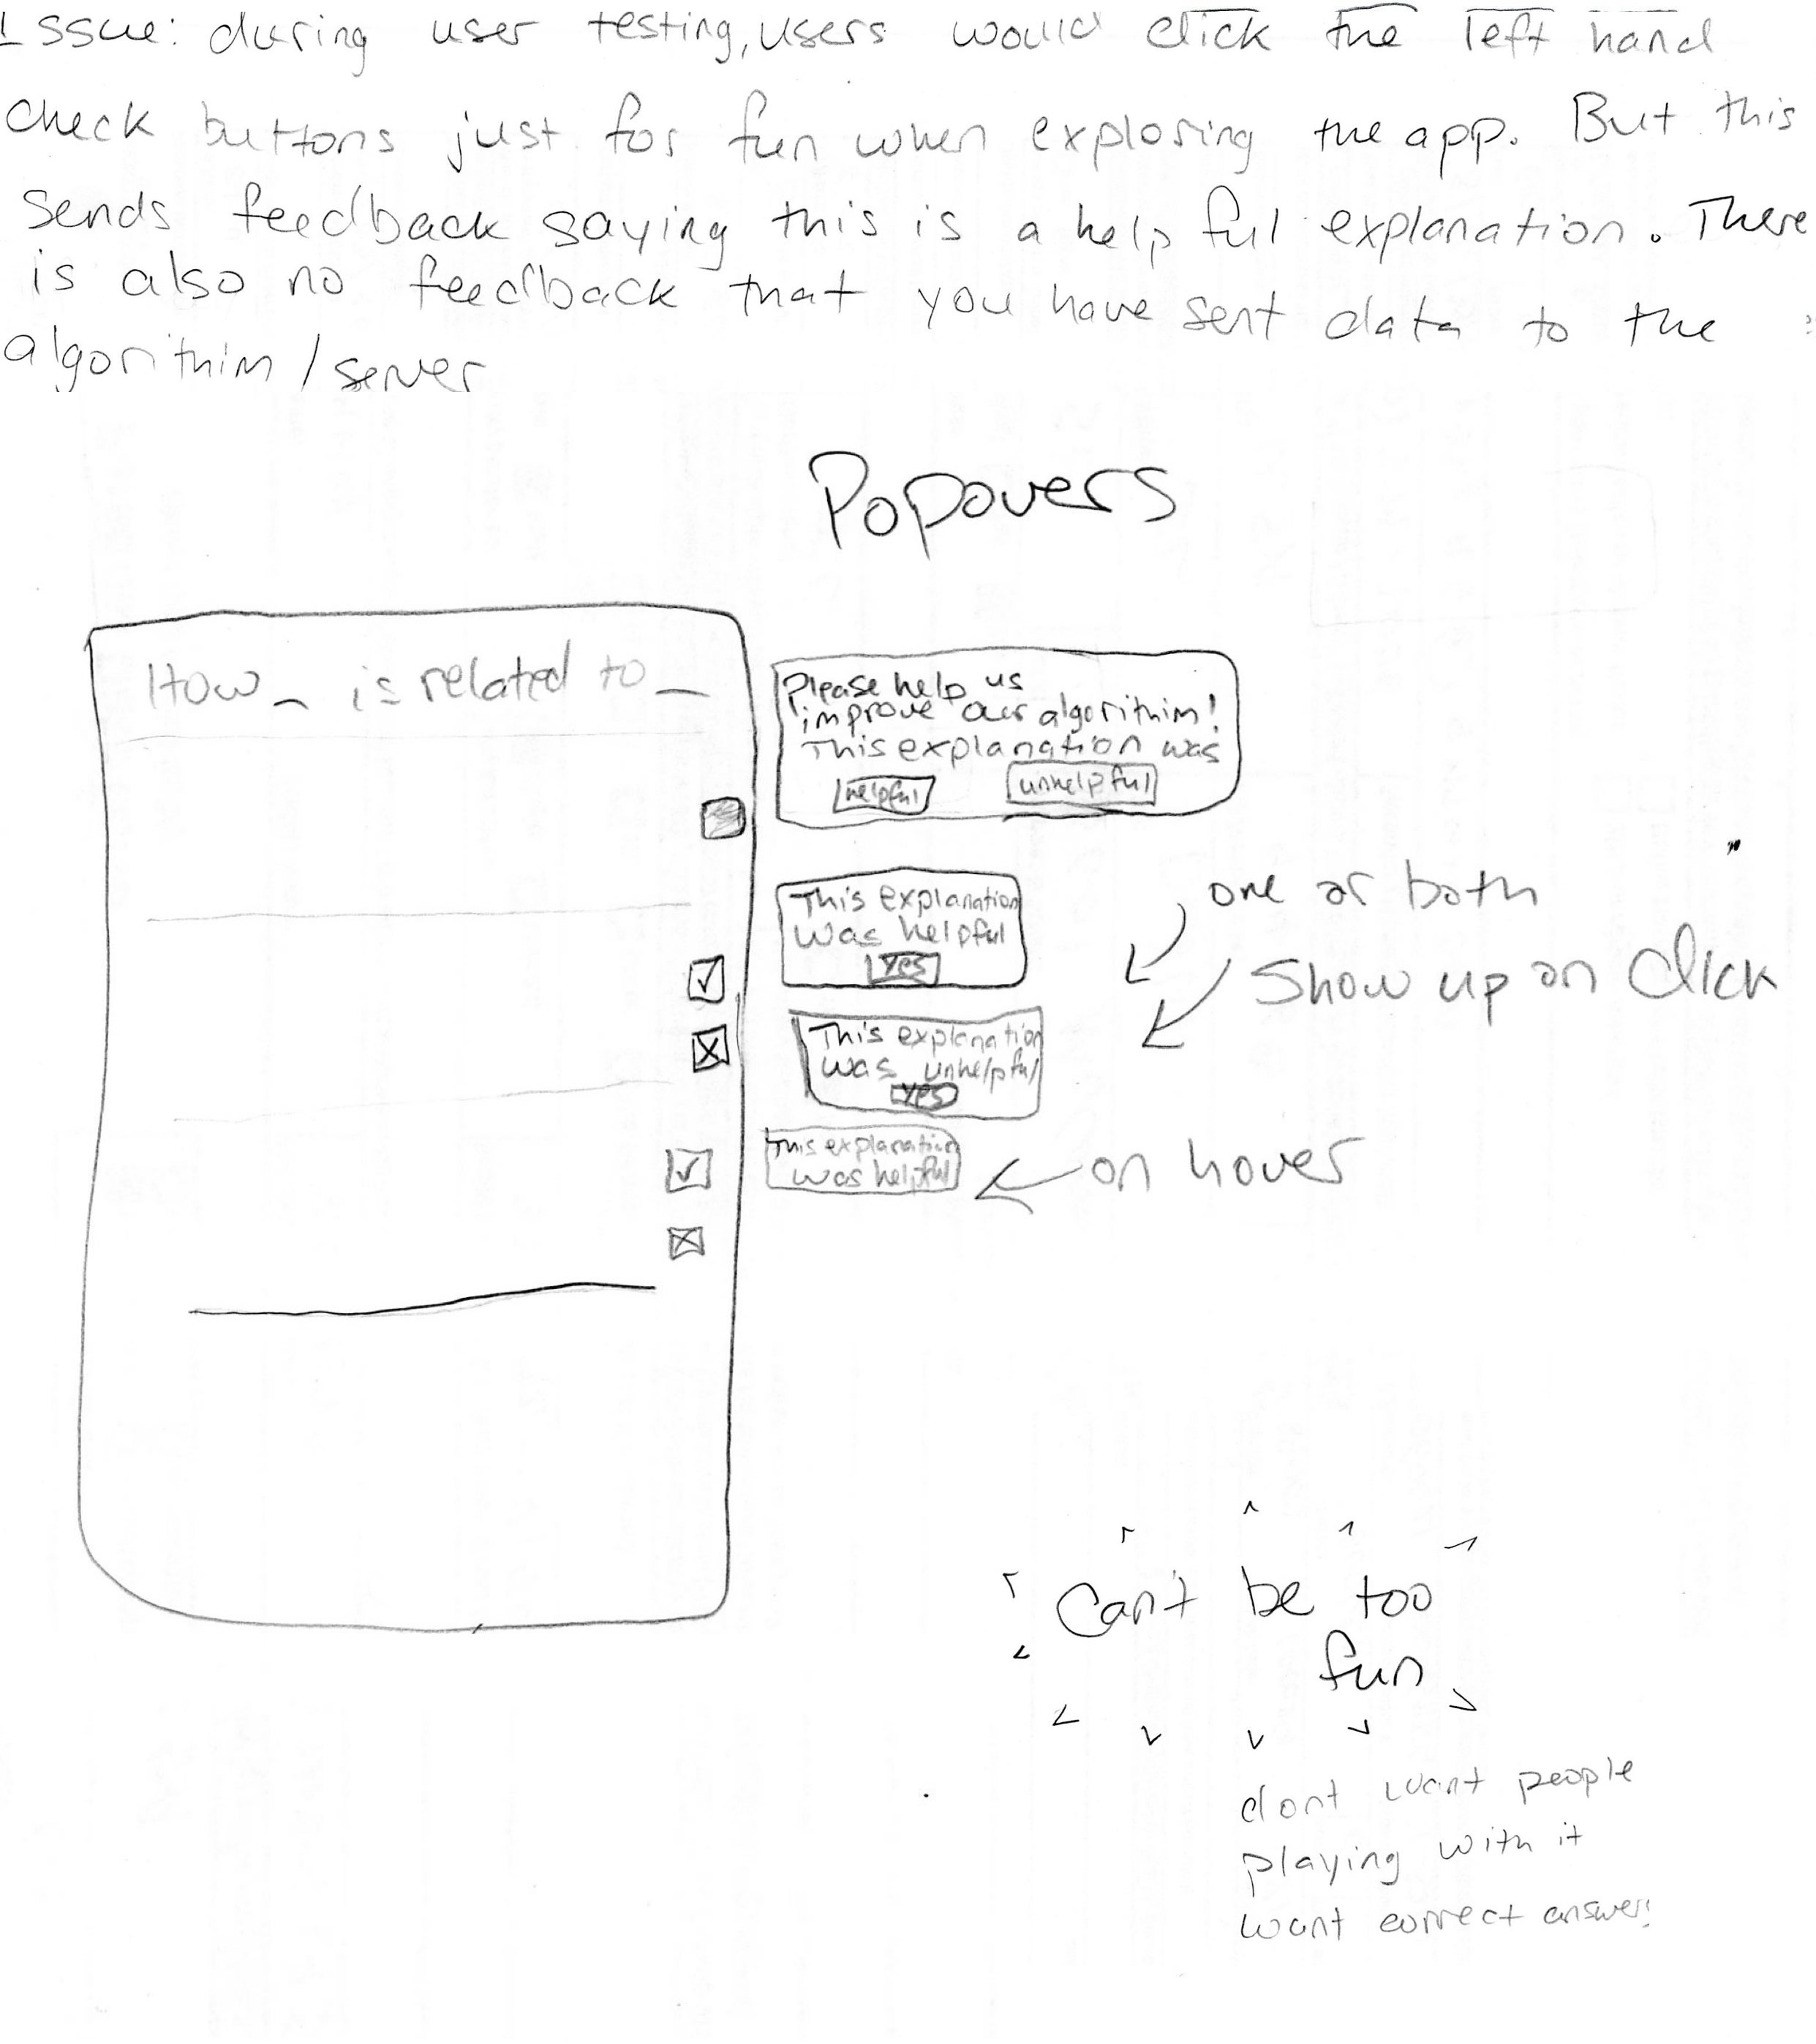 Issue: during user testing, users would click the left hand
check buttons just for fun when exploring the app. But this
sends feedback saying this is a helpful explanation. There
is also no feedback that you have sent data to the
algorithim / server
Popovers
How _ is related to _
Please help us
improve our algorithim!
This explanation was
helpful unhelpful
This explanation
was helpful
Yes
one or both
Show up on Click
This explanation
was unhelpful
Yes
This explanation
was helpful
on hover
Can't be too
fun
dont want people
playing with it
want correct answers